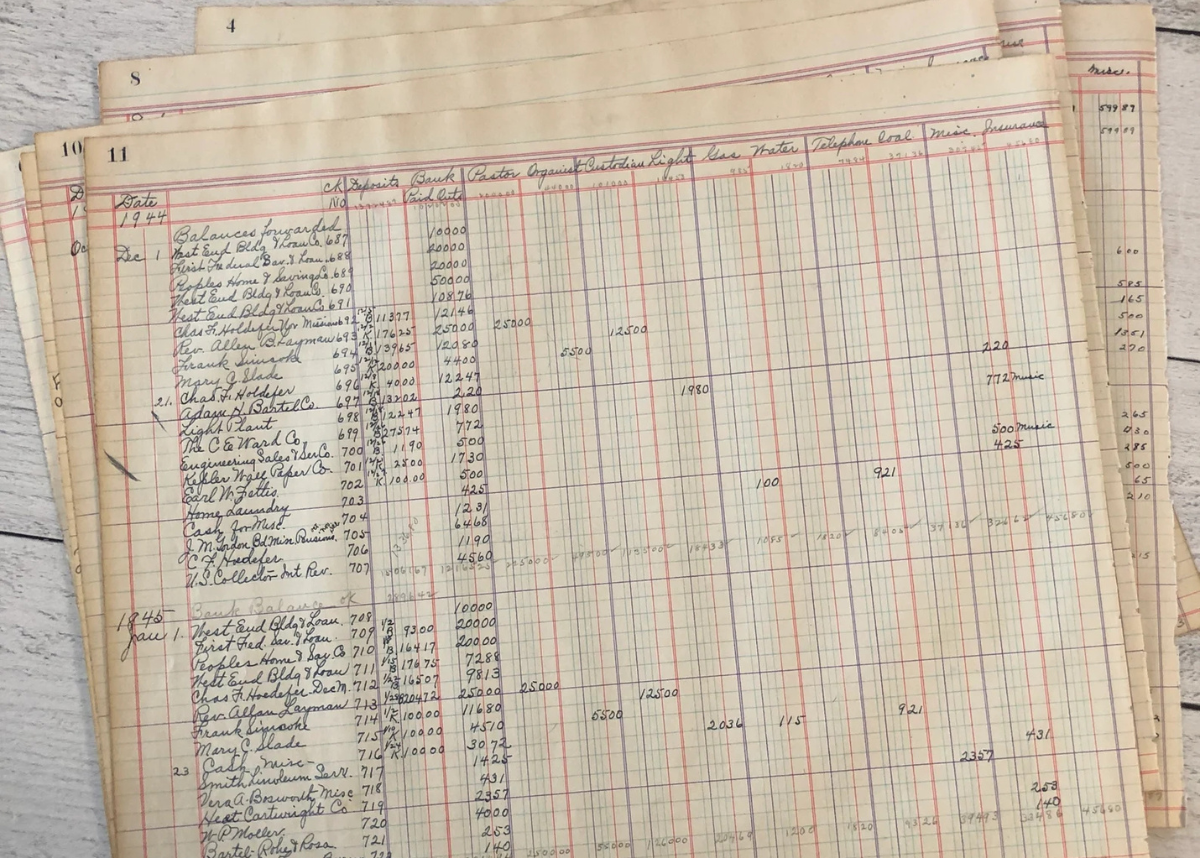 4
8
Misc.
599 89
599 89
10
11
Date Ck No Deposits Bank Paid Outs Pastor Organist Custodian Light Gas Water Telephone Coal Misc. Insurance
1944
Balances forwarded
Dec 1 West End Bldg & Loan Co. 687 10000
First Federal Sav. & Loan 688 20000
Peoples Home & Savings Co. 689 20000
West End Bldg & Loan Co. 690 50000
West End Bldg & Loan Co 691 10876
Chas F. Holdefer Mission 692 B 11377 12146
Rev. Allen B Layman 693 K 17625 25000 25000
Frank Simcoke 694 B 13965 12080 12500
Mary C. Slade 695 K 20000 4400 5500
21. Chas. F. Holdefer 696 K 4000 12247
Adam H. Bartel Co 697 B 13202 220 220
Light Plant 698 B 12247 1980 1980
The C E Ward Co 699 B 27574 772 772 Music
Engineering Sales & Ser Co. 700 B 1190 500
Kepler Wall Paper Co. 701 K 2500 1730
Earl W. Fettis 702 K 10000 500 500 Music
Home Laundry 703 425 425
Cash for Misc. 704 1231 100 921
J. M. Gordon Bd Min. Pensions 705 6468
C. F. Hoedefer 706 1190
U.S. Collector Int Rev. 707 4560
Bank Balance OK
1945
Jan 1. West End Bldg & Loan 708 10000
First Fed. Sav. & Loan 709 1/2 B 9300 20000
Peoples Home & Sav. Co 710 B 16417 20000
West End Bldg & Loan 711 1/15 B 17675 7288
Chas F. Hoedefer Dec M. 712 1/22 B 16507 9813
Rev. Allan Layman 713 20472 25000 25000
Frank Simcoke 714 K 10000 11680 12500
Mary C. Slade 715 K 10000 4510 5500
23 Cash Misc- 716 K 10000 3072 2036 115 921
Smith Linoleum Serv. 717 1425
Vera A. Bosworth Misc 718 431 431
Heat Cartwright Co 719 2357 2357
W. P. Moller 720 4000
Bartel-Rohe & Rosa 721 253 253
140 140
600
585
165
500
1351
270
265
430
285
500
65
210